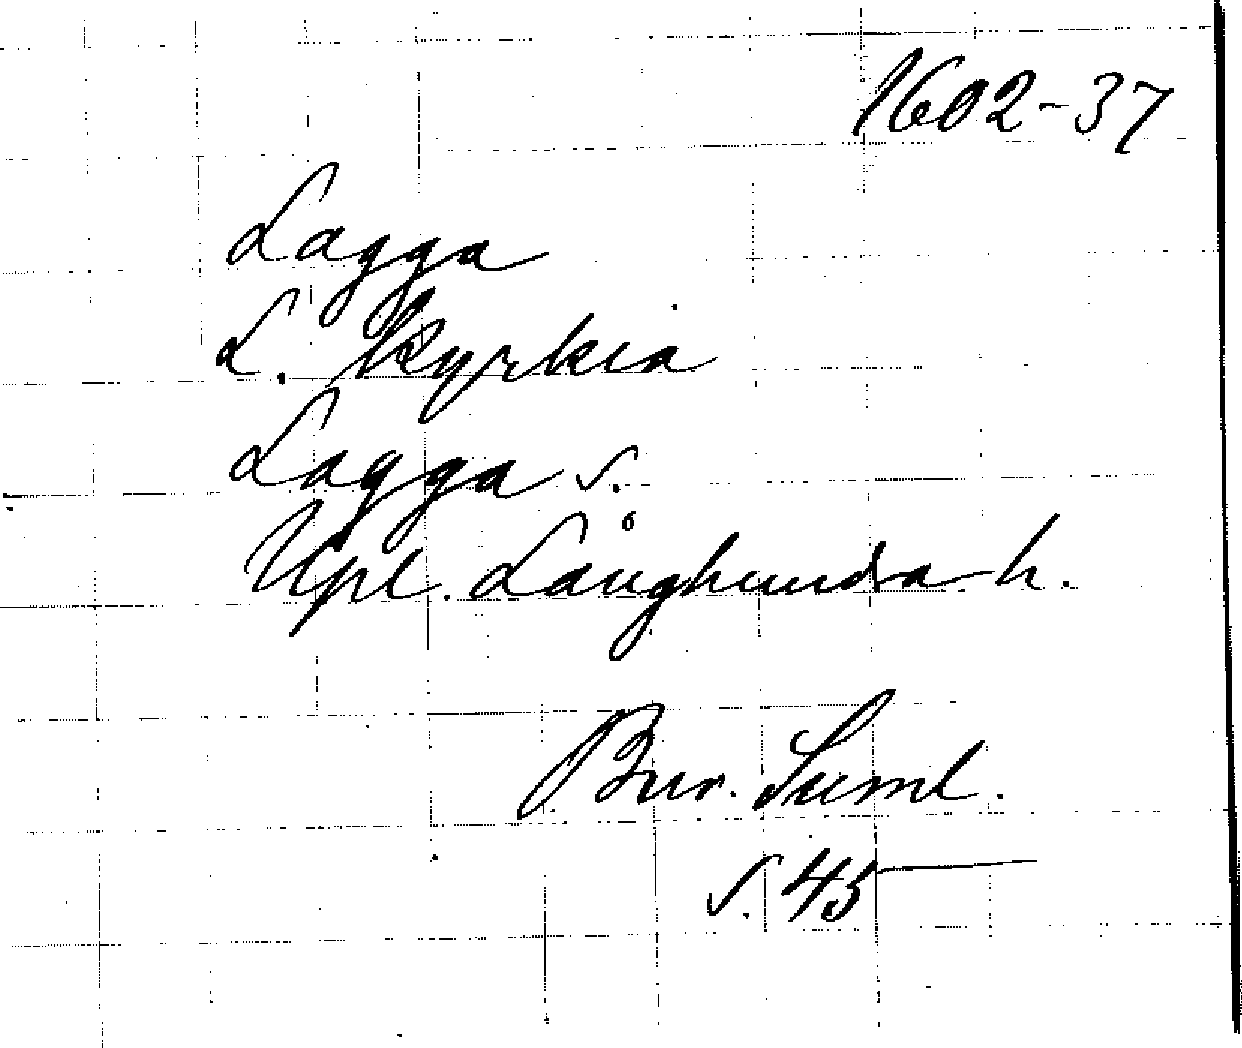 1602-37
Lagga
L. kyrkia
Lagga s.
Upl. Långhundra h.
Bur. Suml.
s. 45